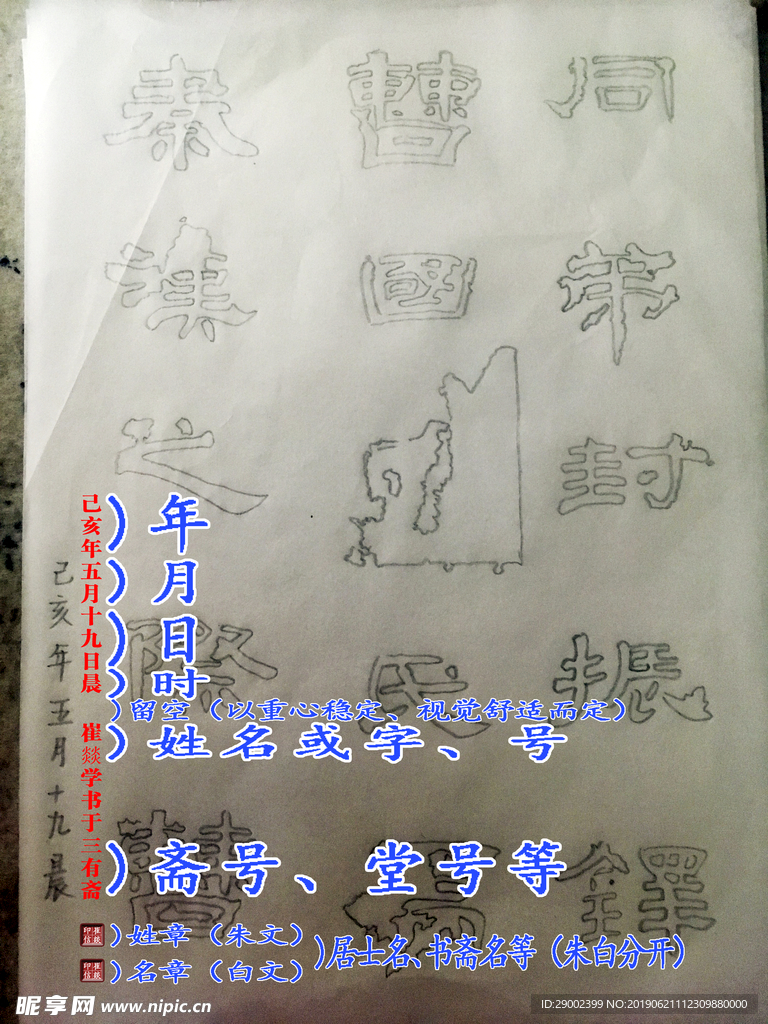 同弟封振鐸
曹國氏焉
秦漢之際曹
己亥年五月十九晨
己亥年五月十九日晨 崔燚学书于三有斋
)年
)月
)日
)时
)留空（以重心稳定、视觉舒适而定）
)姓名或字、号
)斋号、堂号等
崔燚印信
)姓章（朱文）
崔燚印信
)名章（白文）
)居士名、书斋名等（朱白分开）
昵享网 www.nipic.cn
ID:29002399 NO:20190621112309880000